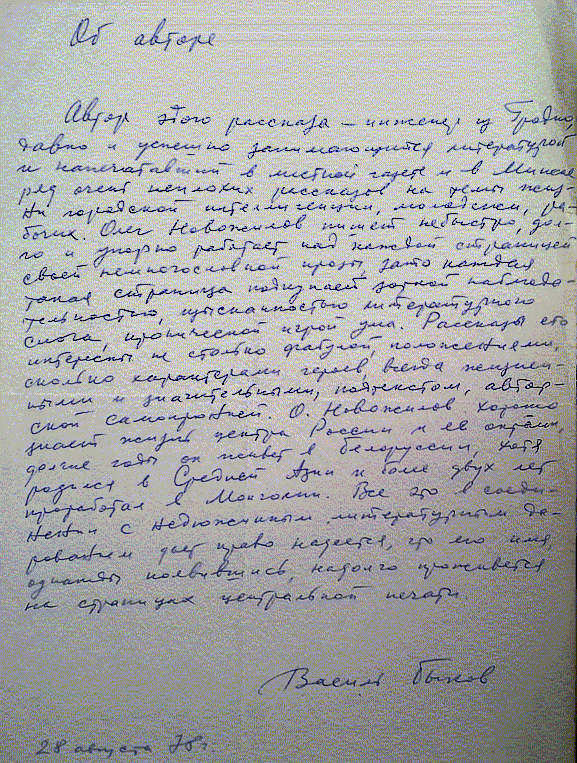 Об авторе
Автор этого рассказа — инженер из Гродно,
давно и успешно занимающийся литературой
и напечатавший в местной газете и в Минске
ряд очень неплохих рассказов на темы жиз-
ни городской интеллигенции, молодежи, ра-
бочих. Олег Новожилов пишет небыстро, дол-
го и упорно работает над каждой страницей
своей немногословной прозы, зато каждая
такая страница подкупает зоркой наблюда-
тельностью, изысканностью литературного
слога, иронической игрой ума. Рассказы его
интересны не столько фабулой, положениями,
сколько характерами героев, всегда жизнен-
ными и значительными, подтекстом, автор-
ской самоиронией. О. Новожилов хорошо
знает жизнь центра России и ее окраин,
долгие годы он живет в Белоруссии, хотя
родился в Средней Азии и более двух лет
проработал в Монголии. Все это в соеди-
нении с недюжинным литературным да-
рованием дает право надеется, что его имя,
однажды появившись, надолго проживется
на страницах центральной печати.
Василь Быков
28 августа 78 г.